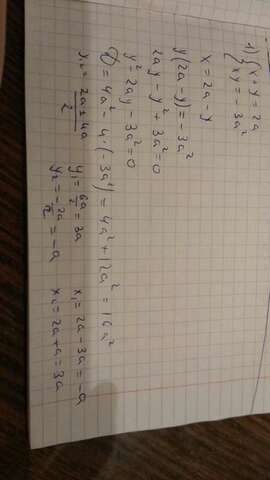 1) { x + y = 2a
xy = -3a²
x = 2a - y
y(2a - y) = -3a²
2ay - y² + 3a² = 0
y² - 2ay - 3a² = 0
D = 4a² - 4·(-3a²) = 4a² + 12a² = 16a²
y₁,₂ = 2a ± 4a / 2
y₁ = 6a/2 = 3a x₁ = 2a - 3a = -a
y₂ = -2a/2 = -a x₂ = 2a + a = 3a